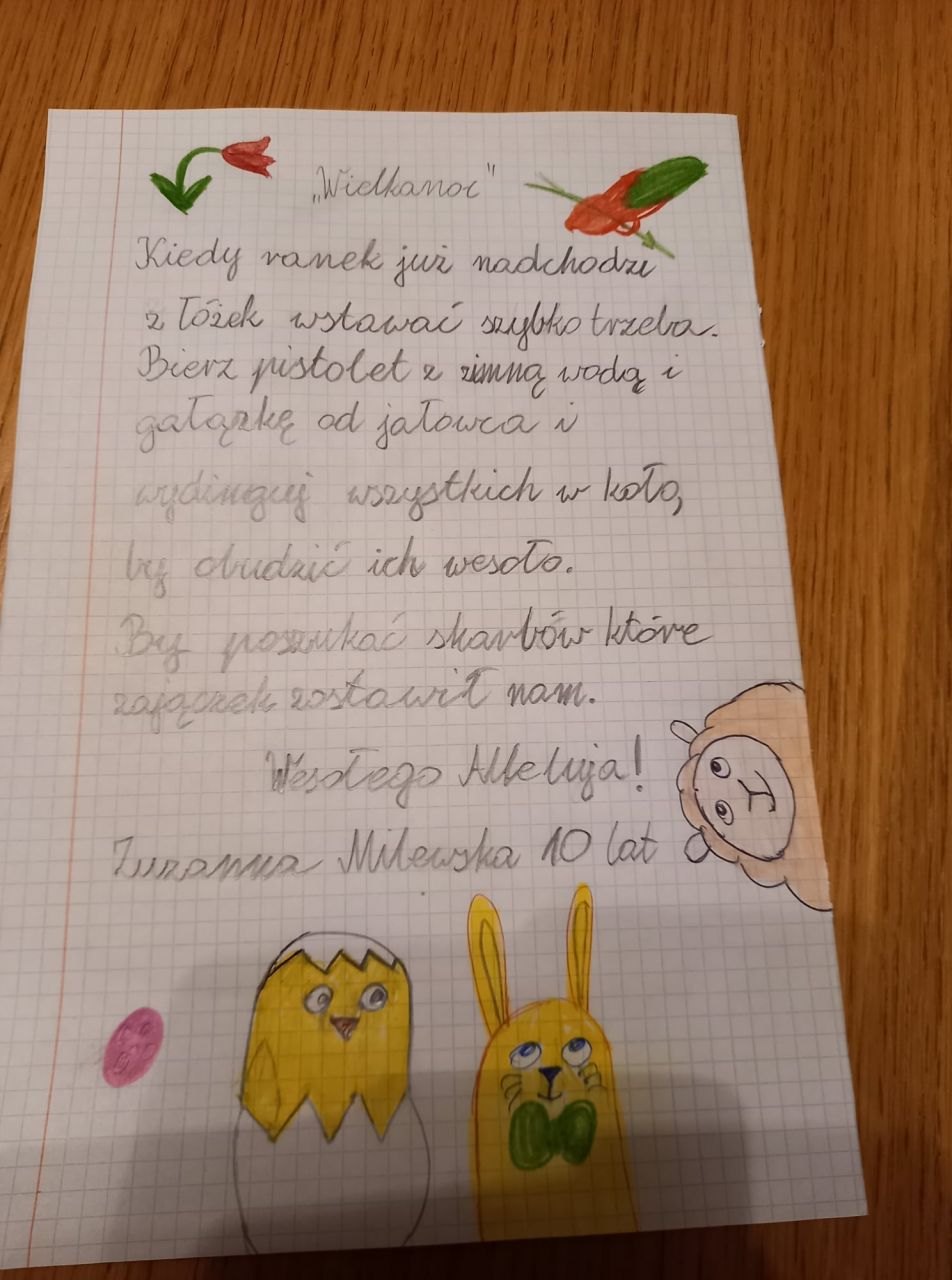 „Wielkanoc"
Kiedy ranek już nadchodzi
z łóżek wstawać szybko trzeba.
Bierz pistolet z zimną wodą i
gałązkę od jałowca i
wydinguj wszystkich w koło,
by obudzić ich wesoło.
By poszukać skarbów które
zajączek zostawił nam.
Wesołego Alleluja!
Zuzanna Milewska 10 lat